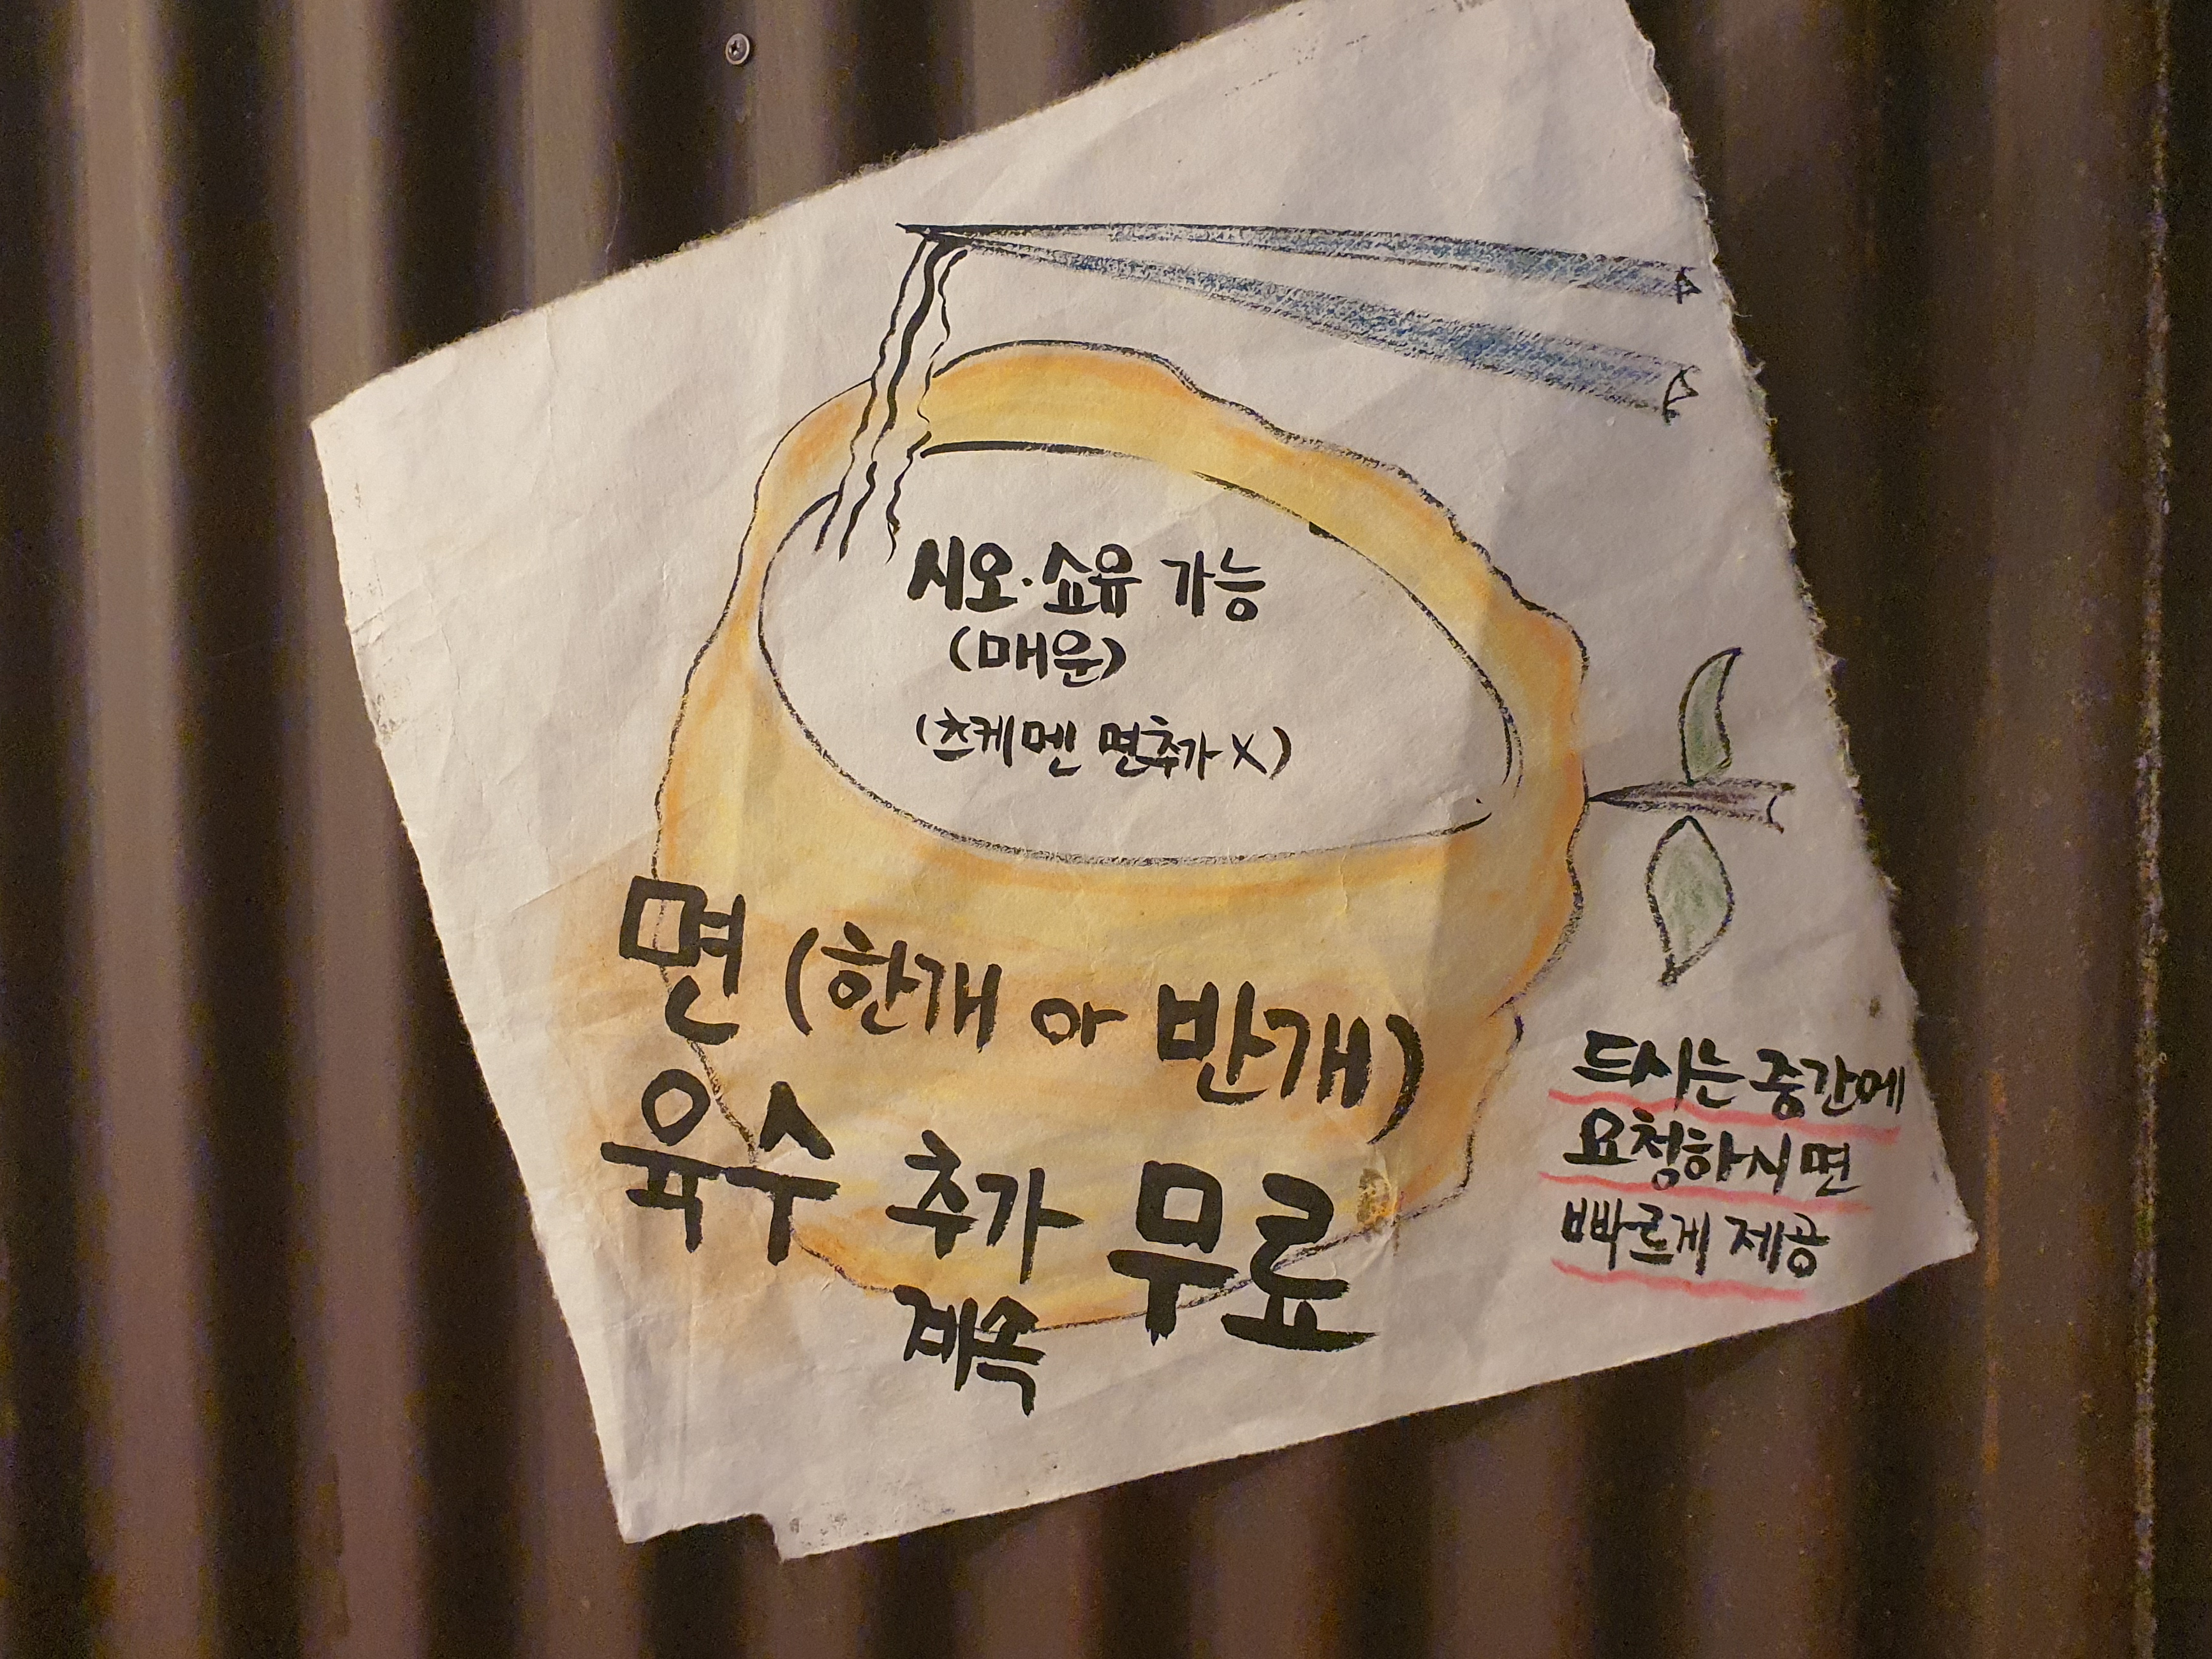 시오·쇼유 가능
(매운)
(츠케멘 면추가 X)
면 (한개 or 반개)
육수 추가 무료
계속
드시는 중간에
요청하시면
빠르게 제공